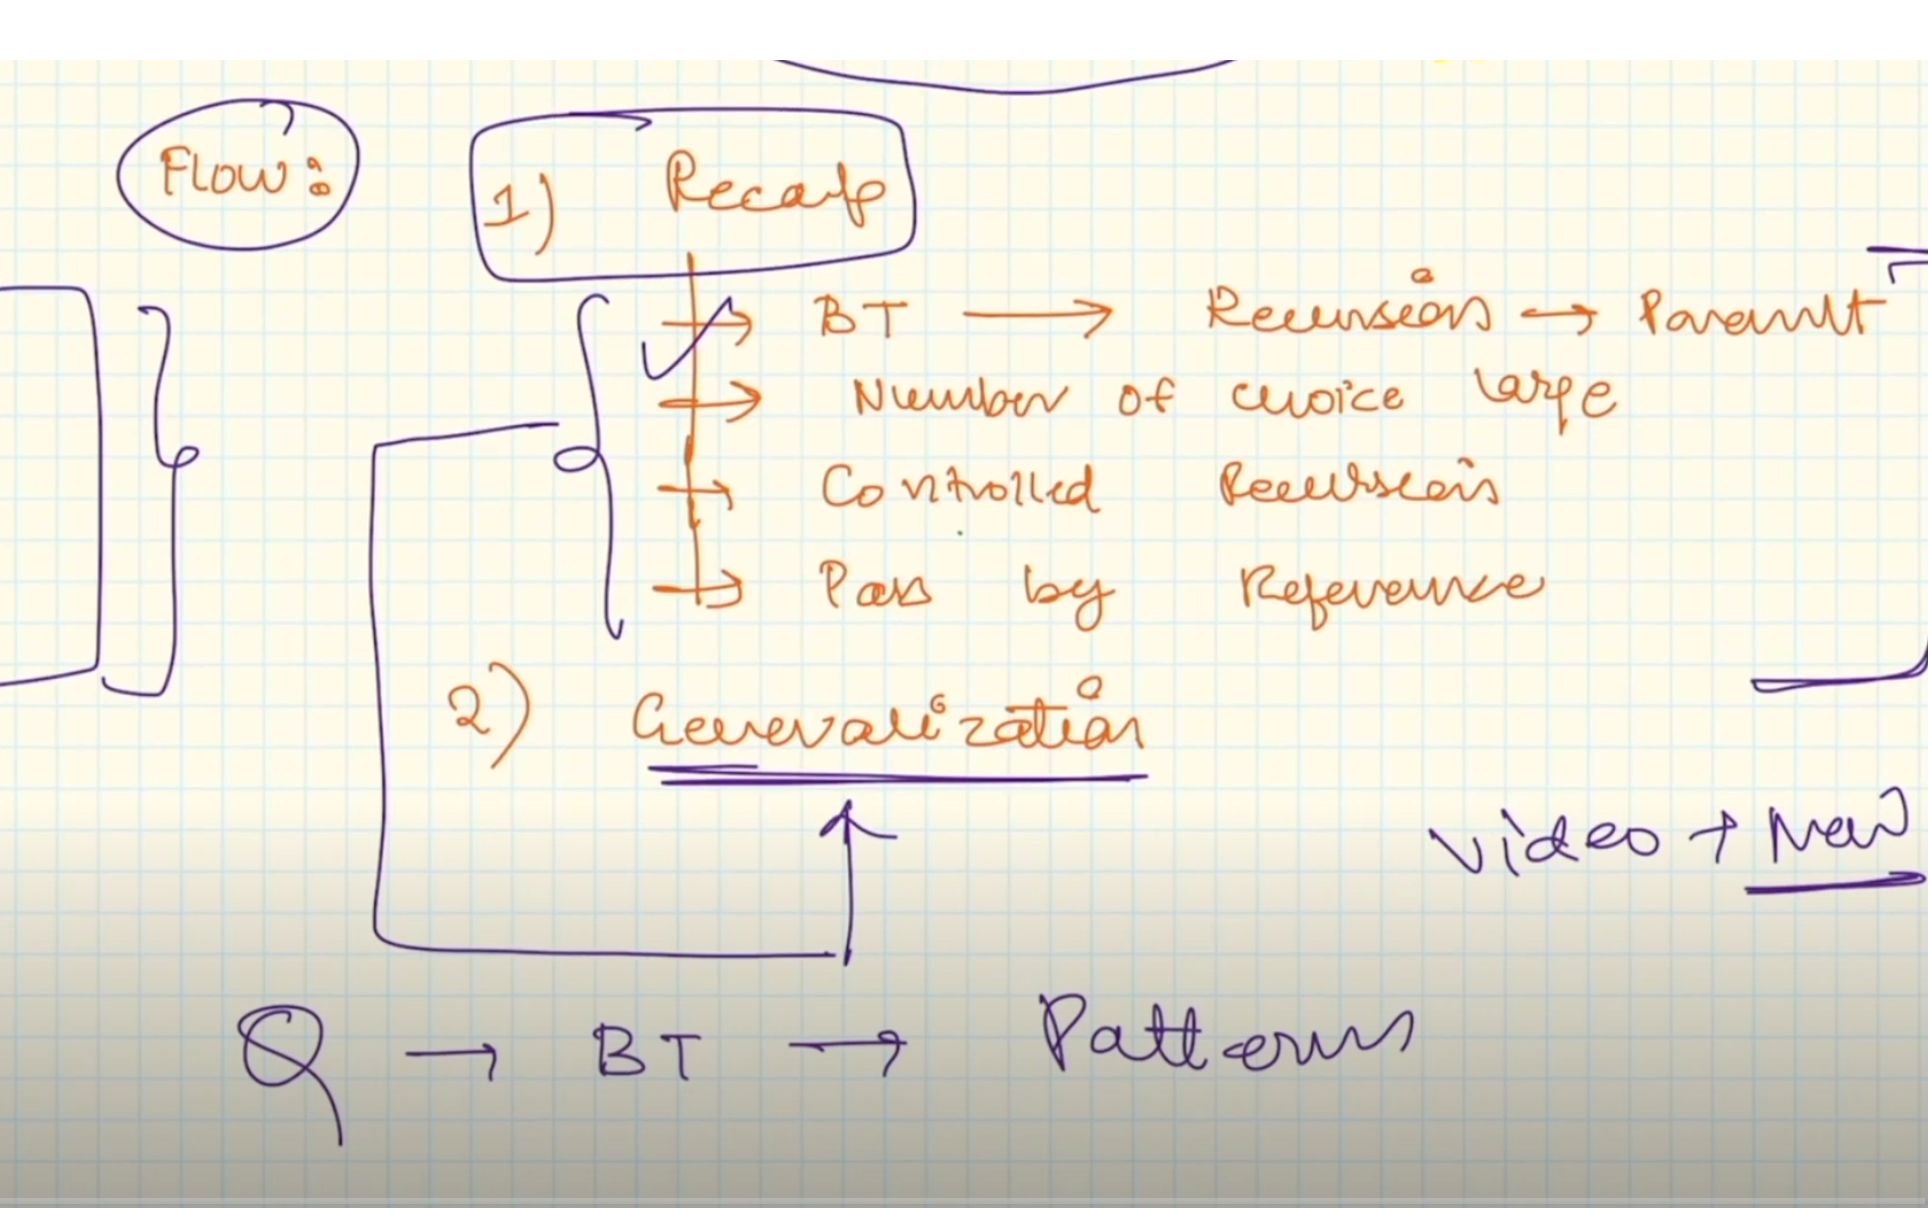 Flow:
1) Recap
→ BT → Recursion → Parent
→ Number of choice large
→ Controlled Recursion
→ Pass by Reference
2) Generalization
Video → New
Q → BT → Patterns